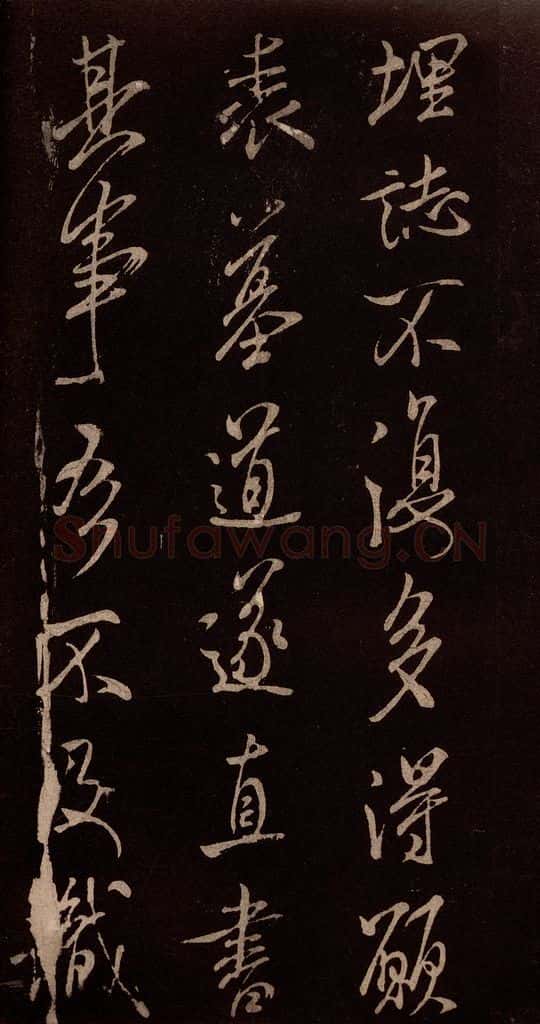 埋誌不復多得願
表墓道遂直書
其事吾不及識
Shufawang.CN